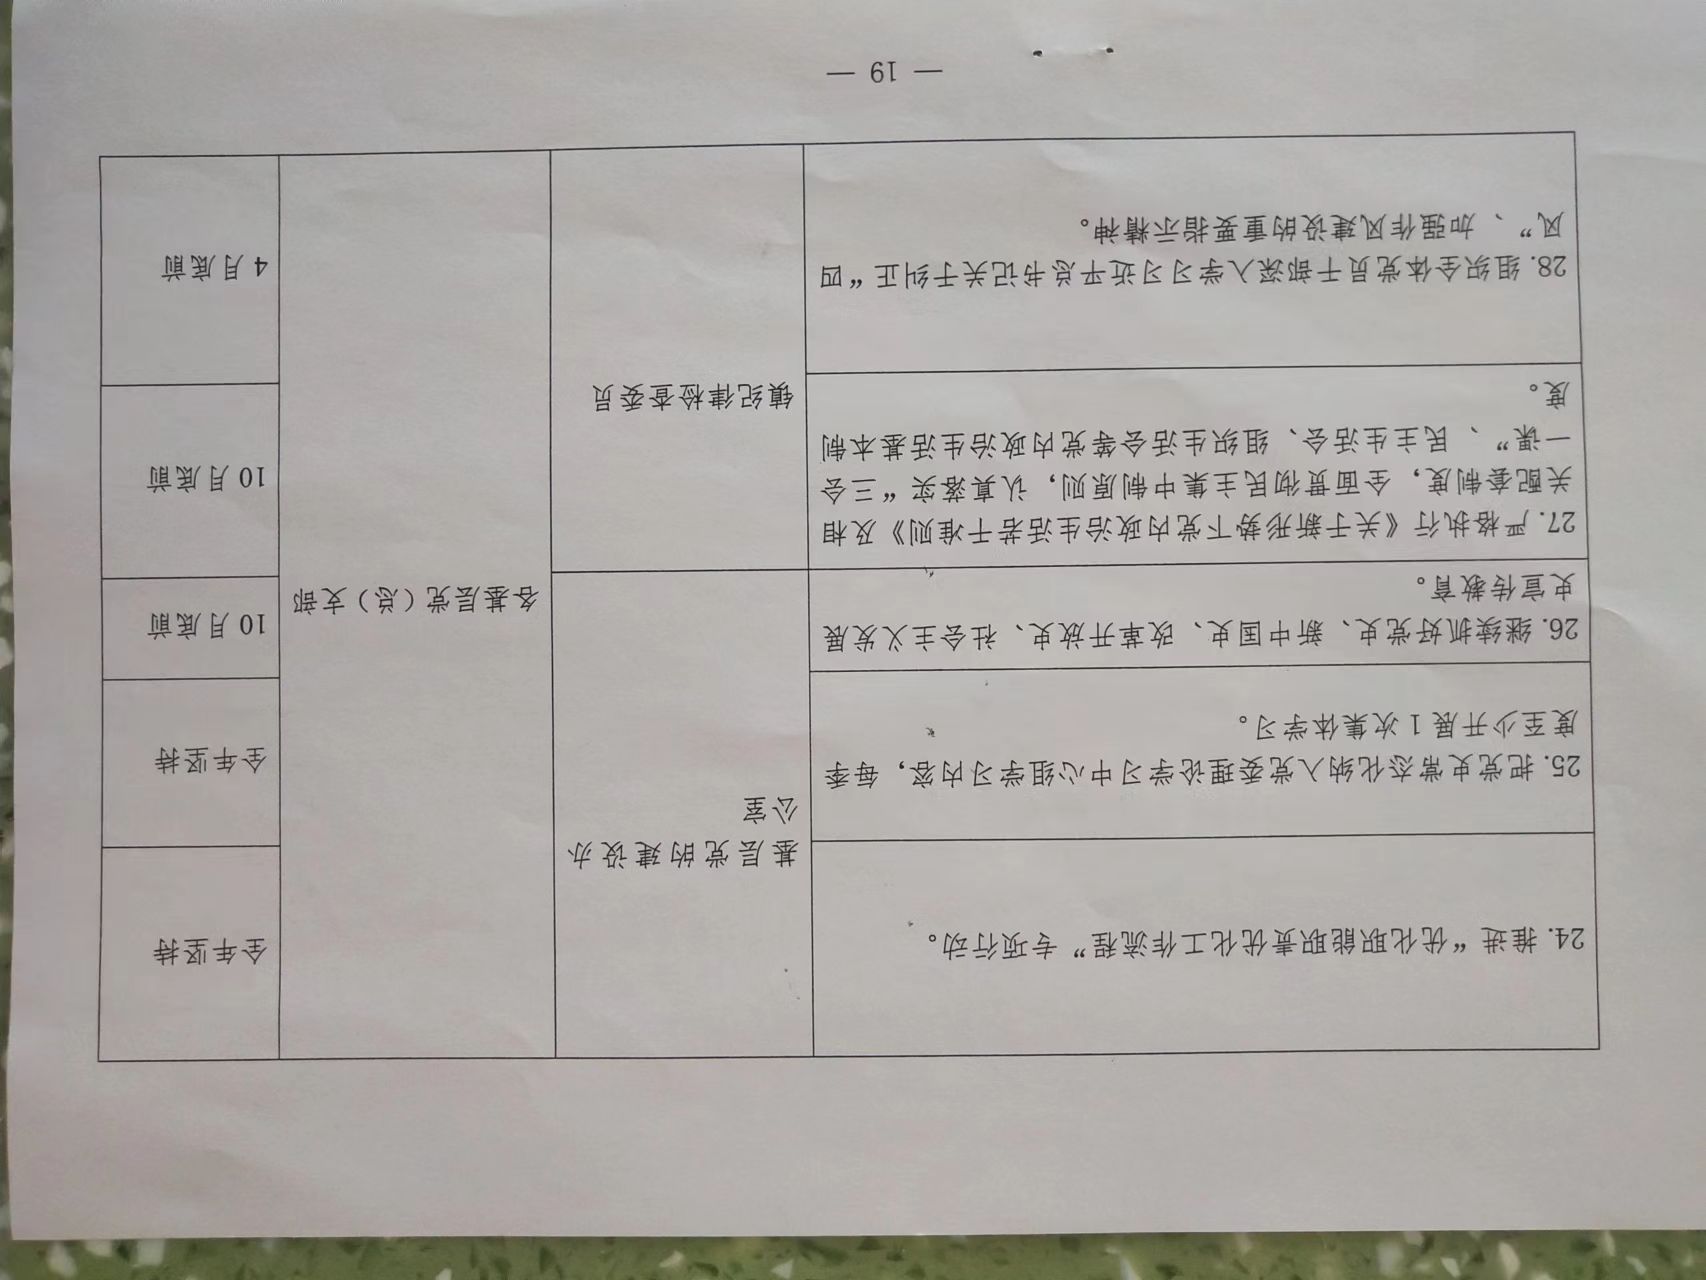 24. 推进“优化职能职责优化工作流程”专项行动。
基层党的建设办
公室
各基层党（总）支部
全年坚持
25. 把党史常态化纳入党委理论学习中心组学习内容，每季
度至少开展1次集体学习。
全年坚持
26. 继续抓好党史、新中国史、改革开放史、社会主义发展
史宣传教育。
10月底前
27. 严格执行《关于新形势下党内政治生活若干准则》及相
关配套制度，全面贯彻民主集中制原则，认真落实“三会
一课”、民主生活会、组织生活会等党内政治生活基本制
度。
镇纪律检查委员
10月底前
28. 组织全体党员干部深入学习习近平总书记关于纠正“四
风”、加强作风建设的重要指示精神。
4月底前
— 19 —